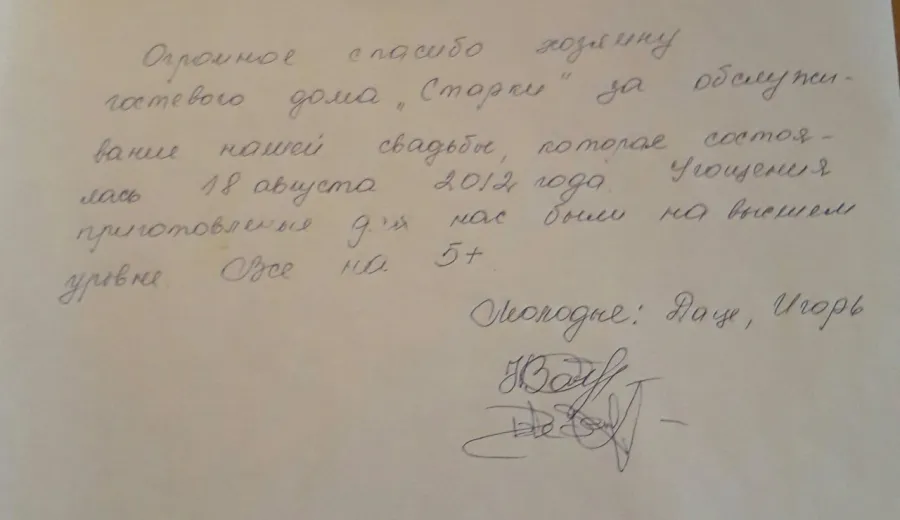 Огромное спасибо хозяину
гостевого дома „Старки" за обслужи-
вание нашей свадьбы, которая состоя-
лась 18 августа 2012 года. Угощения
приготовленые для нас были на высшем
уровне. Все на 5+
Молодые: Даце, Игорь